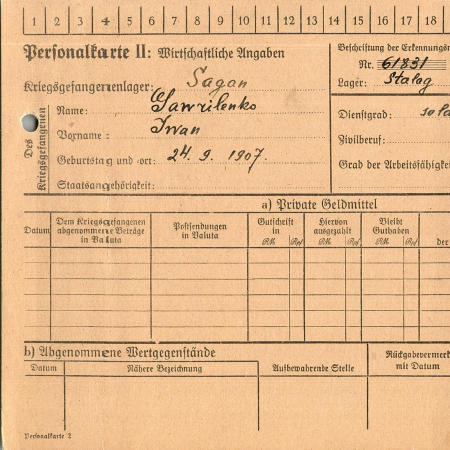 1 2 3 4 5 6 7 8 9 10 11 12 13 14 15 16 17 18
Personalkarte II: Wirtschaftliche Angaben
Beschriftung der Erkennungsm
Nr. 61831
Kriegsgefangenenlager: Sagan
Lager: Stalag
Des Kriegsgefangenen
Name: Gawrilenko
Vorname: Iwan
Geburtstag und -ort: 24. 9. 1907.
Staatsangehörigkeit:
Dienstgrad:
Zivilberuf:
Grad der Arbeitsfähigkei
a) Private Geldmittel
Datum
Dem Kriegsgefangenen abgenommene Beträge in Valuta
Postsendungen in Valuta
Gutschrift in
RM Rpf
Hiervon ausgezahlt
RM Rpf
Bleibt Guthaben
RM Rpf
der
b) Abgenommene Wertgegenstände
Datum
Nähere Bezeichnung
Aufbewahrende Stelle
Rückgabevermerk mit Datum
Personalkarte 2